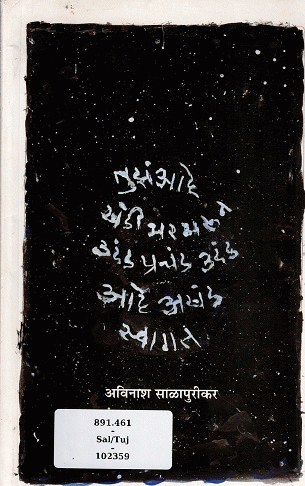 तुझं आहे
थंडी भरभरून
उदंड प्रचंड उदंड
आहे अखंड
स्वागत
अविनाश साळापुरीकर
891.461
-
Sal/Tuj
-
102359